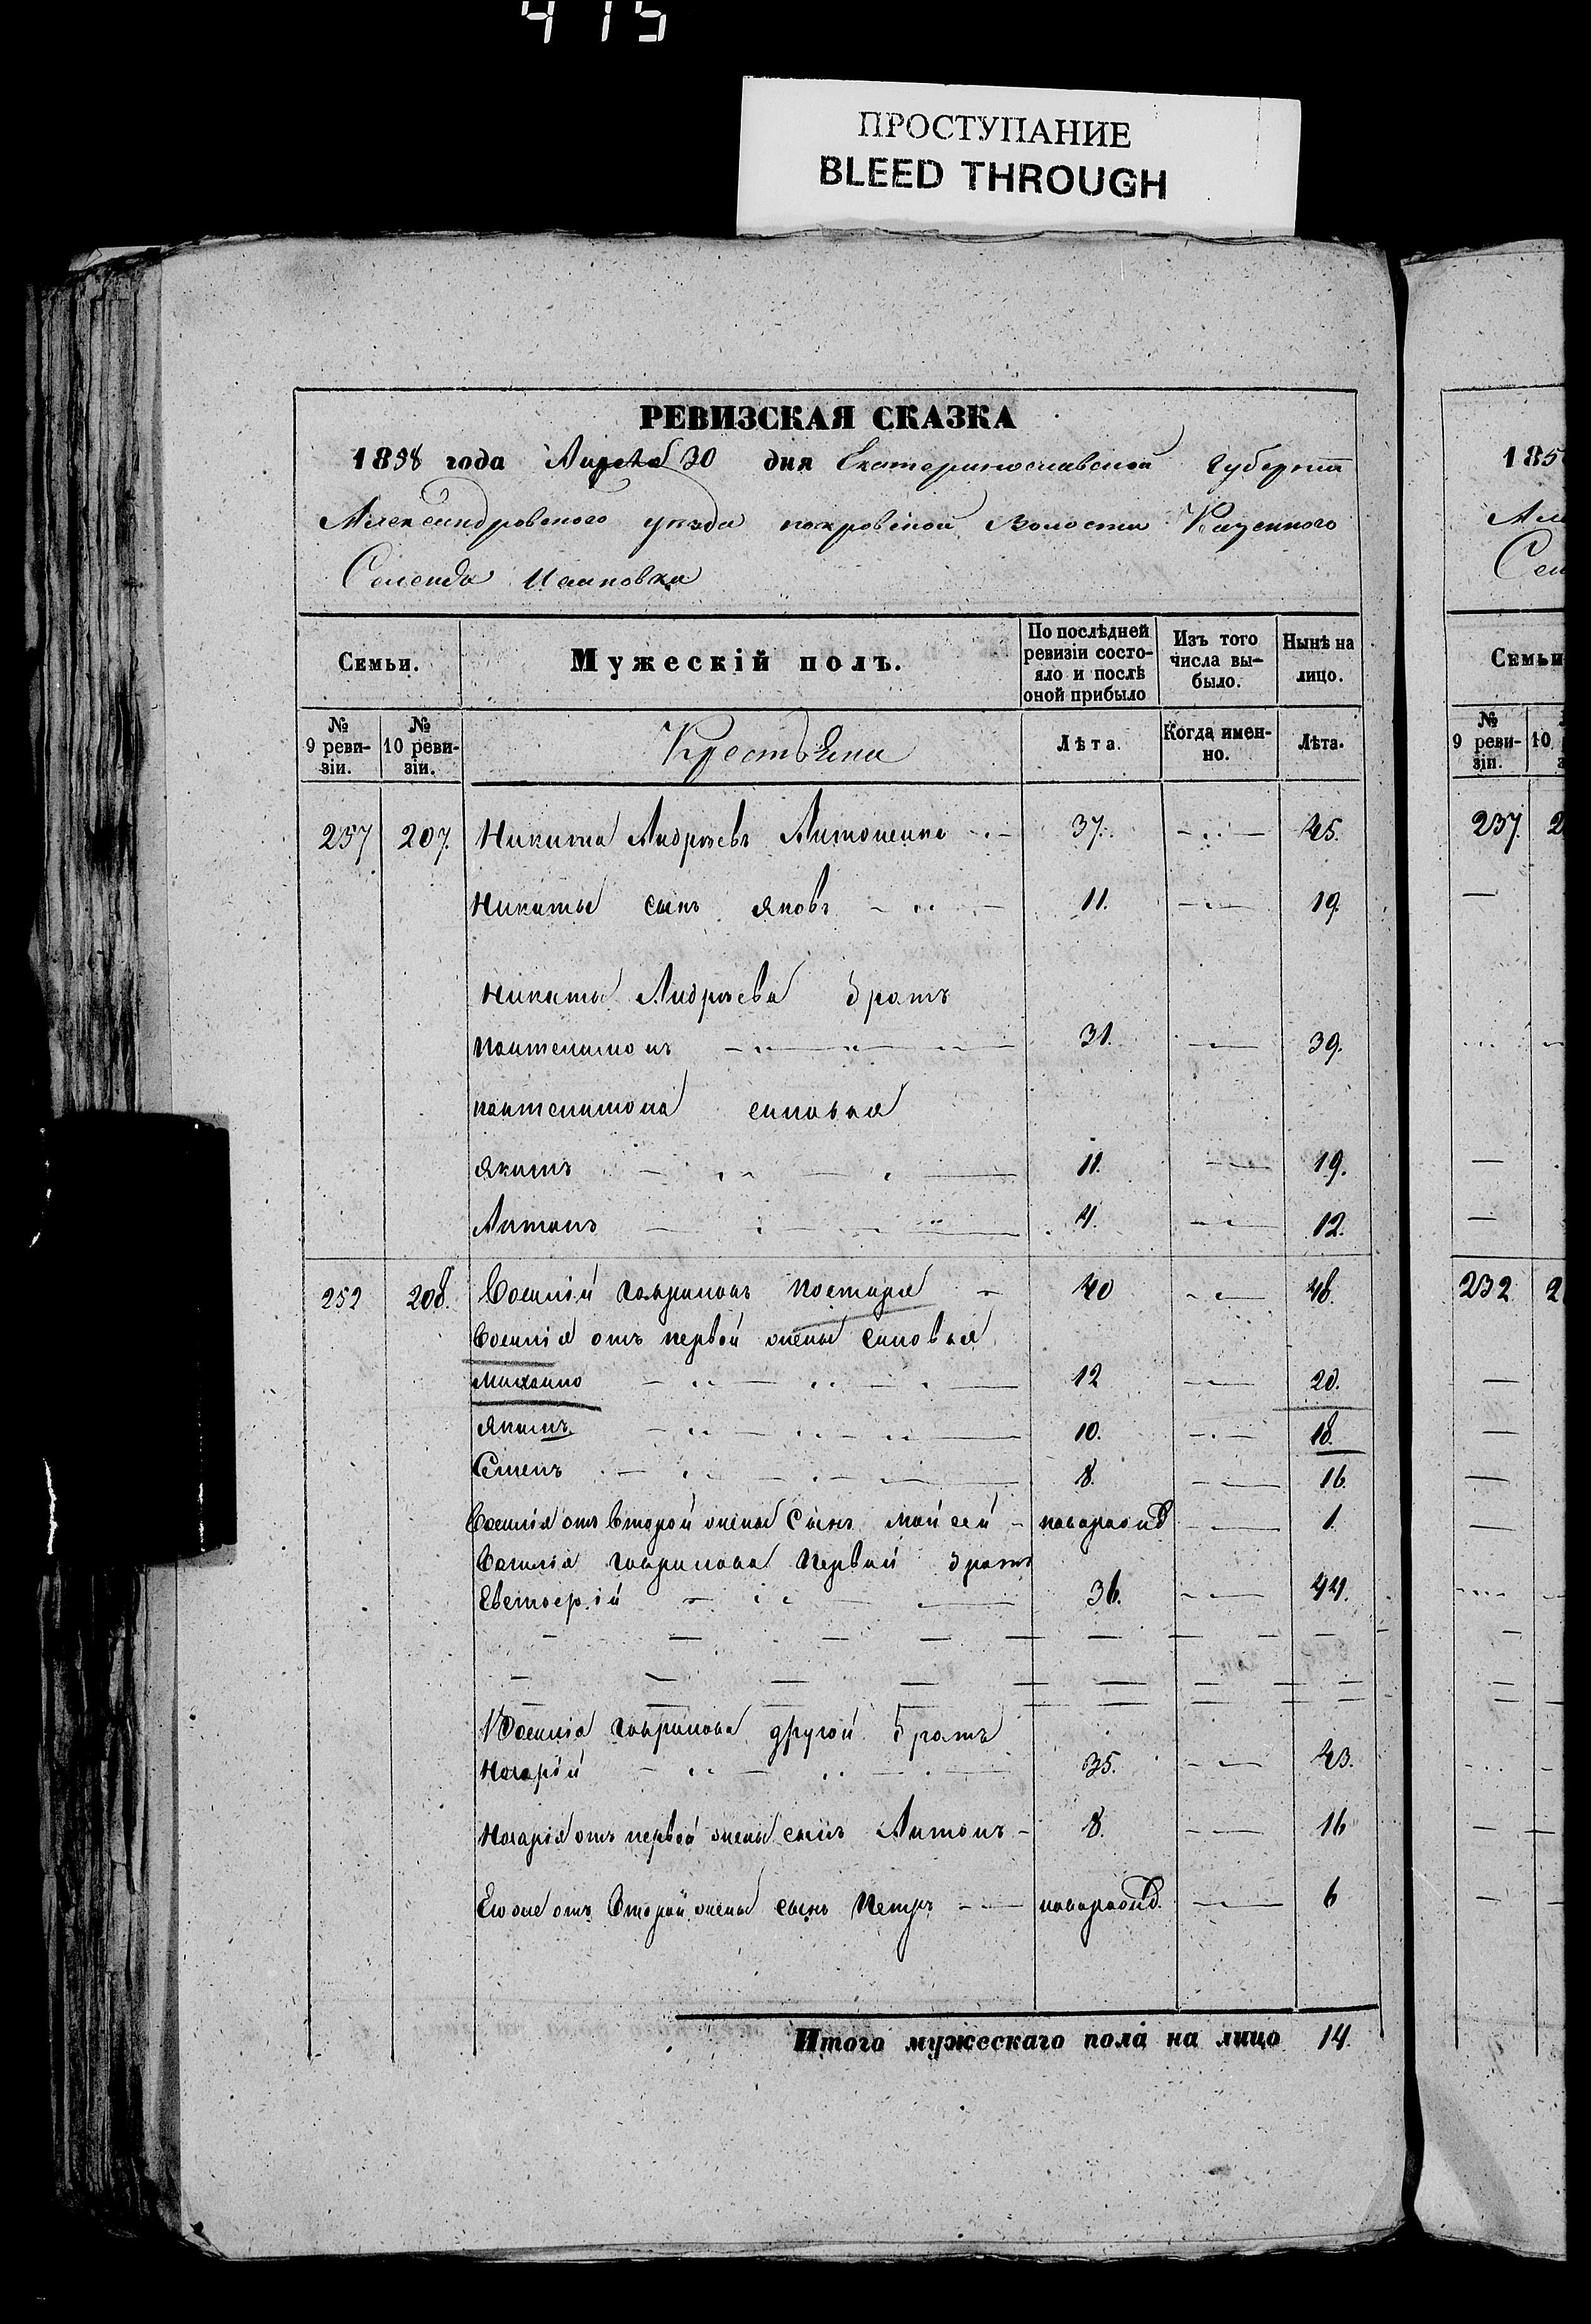 415
ПРОСТУПАНИЕ
BLEED THROUGH
РЕВИЗСКАЯ СКАЗКА
1858 года Апреля 30 дня Екатеринославской Губернии
Александровского уезда покровской Волости Казенного
Селенда
Семьи. Мужескій полъ. По послѣдней ревизіи состояло и послѣ оной прибыло Изъ того числа вы–было. Нынѣ на лицо.
№ 9 реви-зіи. № 10 реви-зіи. Крестьяни Лѣта. Когда имен-но. Лѣта.
257 207. Никита Андреевъ Антоненко 37. 45.
Никиты сынъ Яковъ 11. 19.
Никиты Андреева братъ
Пантелимонъ 31. 39.
пантелимона синовья
Якимъ 11. 19.
Антонъ 4. 12.
252 208. Василій Гавриловъ 40 48.
Василія отъ первой жены синовья
Михаило 12 20.
Якимъ 10. 18.
Семенъ 8. 16.
Василія отъ Второй жены Сынъ Мойсей новорожд 1.
Василія Гаврилова Первый братъ
36. 44.
Василія Гаврилова другой братъ
35. 43.
отъ первой жены сынъ Антонъ 8. 16
Его же отъ Второй жены сынъ Петръ новорожд. 6
Итого мужескаго пола на лицо 14.
185
Семьи
№ 9 реви-зіи. 10
237. 2
232 2